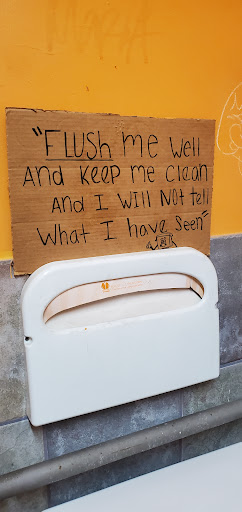 "FLUSH me well
And Keep me clean
And I Will Not tell
What I have seen"